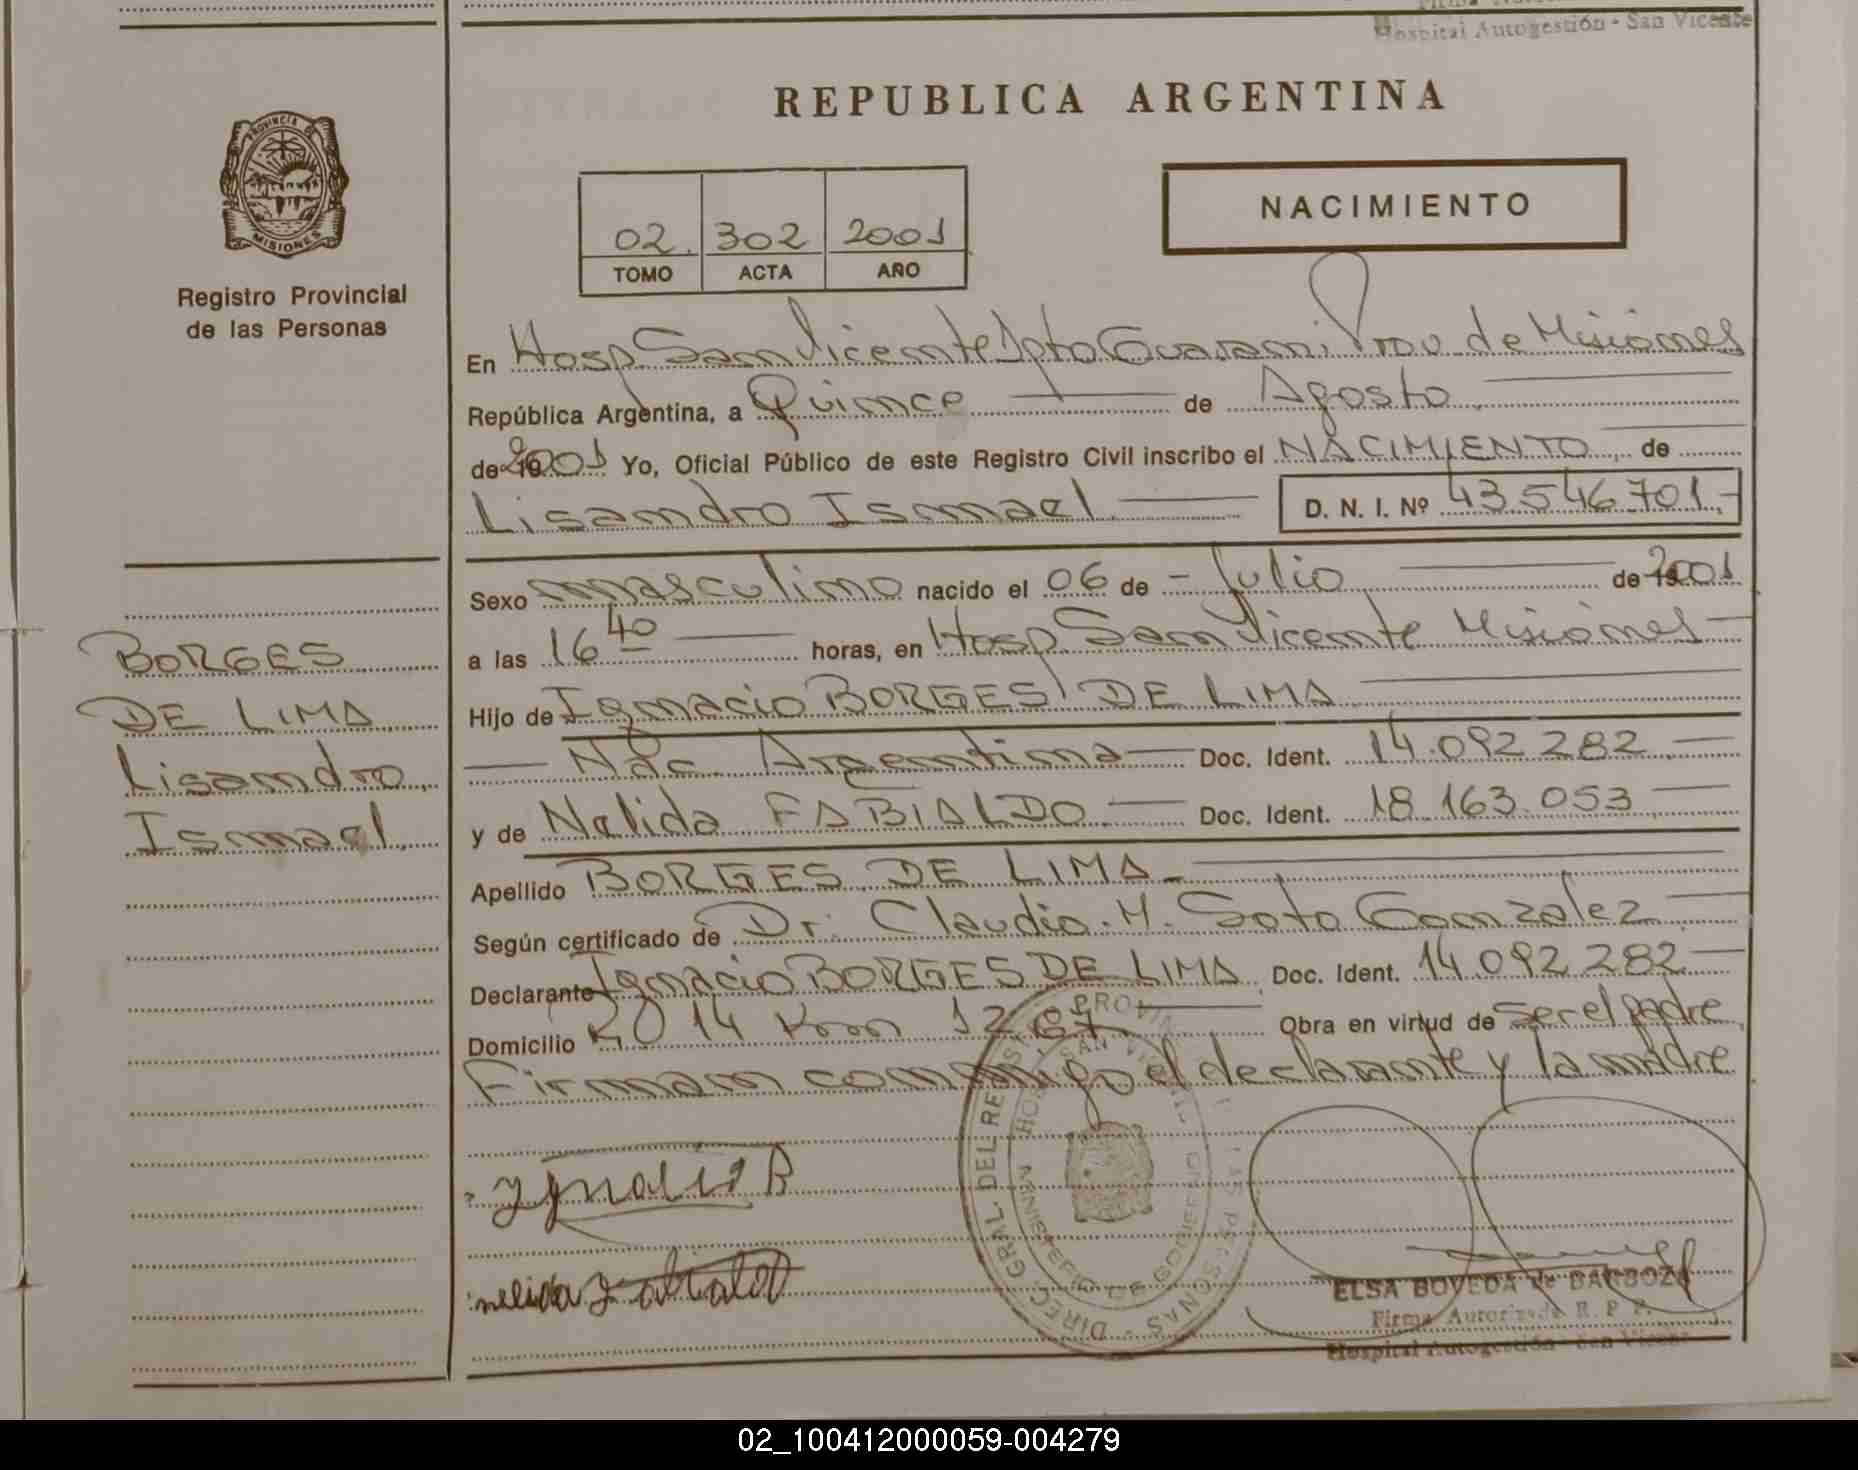 Hospital Autogestión - San Vicente
REPUBLICA ARGENTINA
PROVINCIA DE
MISIONES
Registro Provincial
de las Personas
02. 302 2001
TOMO ACTA AÑO
NACIMIENTO
En Hosp San Vicente Dpto Guarani Prov de Misiones
República Argentina, a Quince de Agosto
de 2001 Yo, Oficial Público de este Registro Civil inscribo el NACIMIENTO de
Lisandro Ismael D. N. I. Nº 43.546.701.-
Sexo masculino nacido el 06 de - Julio de 2001
a las 16 40 horas, en Hosp San Vicente Misiones
Hijo de Ignacio BORGES DE LIMA
Nac. Argentina Doc. Ident. 14.092.282
y de Nelida FABIALDO Doc. Ident. 18.163.053
Apellido BORGES DE LIMA
Según certificado de Dr. Claudio. M. Soto Gonzalez
Declarante Ignacio BORGES DE LIMA Doc. Ident. 14.092.282
Domicilio 14 Km 1267 Obra en virtud de ser el padre
Firman conmigo el declarante y la madre
BORGES
DE LIMA
Lisandro
Ismael
Ygnacio B
nelida
ELSA BOVEDA de BARBOZA
Firma Autorizada R. P. P.
Hospital Autogestión - San Vicente
02_100412000059-004279